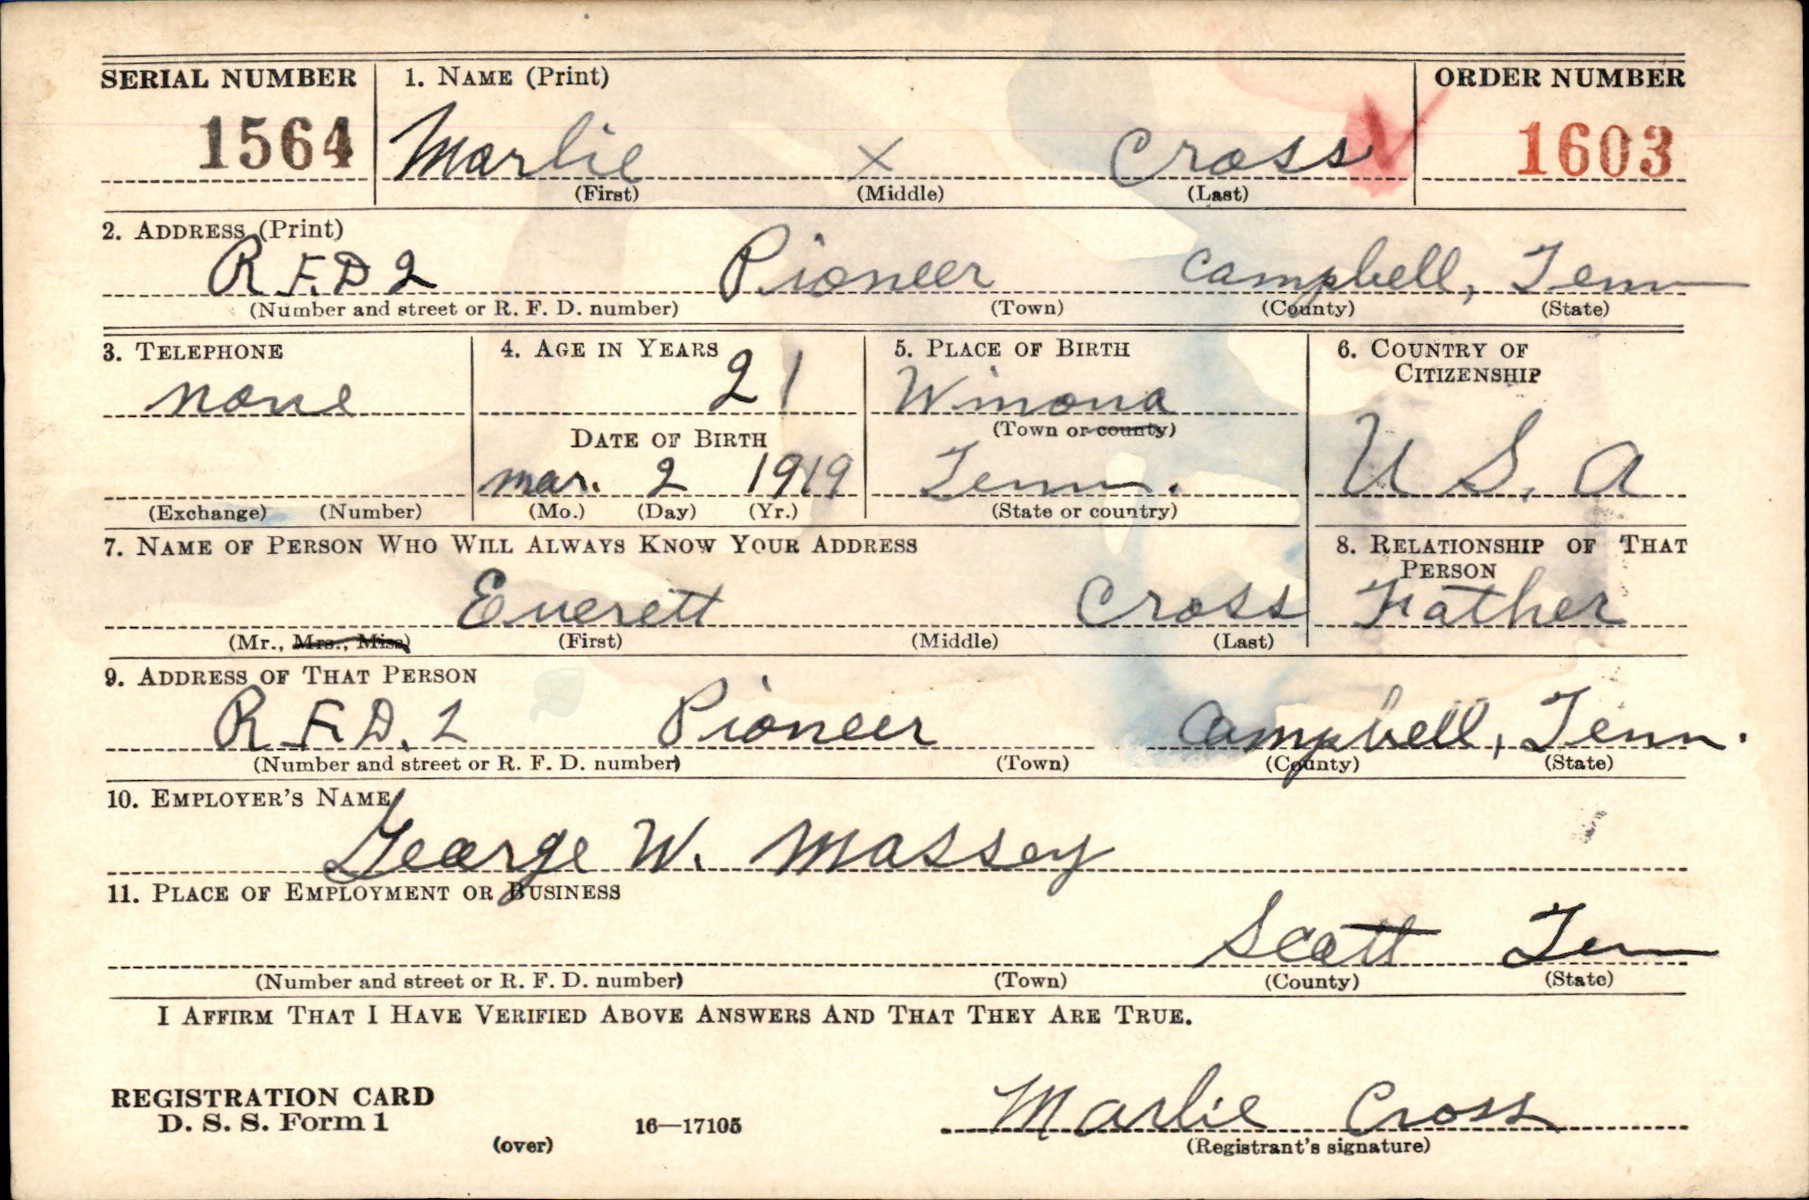 SERIAL NUMBER 1. NAME (Print) ORDER NUMBER
1564 Marlie x Cross 1603
(First) (Middle) (Last)
2. ADDRESS (Print)
R.F.D 2 Pioneer Campbell, Tenn
(Number and street or R. F. D. number) (Town) (County) (State)
3. TELEPHONE 4. AGE IN YEARS 5. PLACE OF BIRTH 6. COUNTRY OF
CITIZENSHIP
none 21 Winona
(Town or county)
DATE OF BIRTH
mar. 2 1919 Tenn. U S. A
(Exchange) (Number) (Mo.) (Day) (Yr.) (State or country)
7. NAME OF PERSON WHO WILL ALWAYS KNOW YOUR ADDRESS 8. RELATIONSHIP OF THAT
PERSON
Everett Cross Father
(Mr., Mrs., Miss) (First) (Middle) (Last)
9. ADDRESS OF THAT PERSON
R.F.D. 2 Pioneer Campbell, Tenn.
(Number and street or R. F. D. number) (Town) (County) (State)
10. EMPLOYER'S NAME
George W. Massey
11. PLACE OF EMPLOYMENT OR BUSINESS
Scott Tenn
(Number and street or R. F. D. number) (Town) (County) (State)
I AFFIRM THAT I HAVE VERIFIED ABOVE ANSWERS AND THAT THEY ARE TRUE.
REGISTRATION CARD
D. S. S. Form 1 16—17105 Marlie Cross
(over) (Registrant's signature)